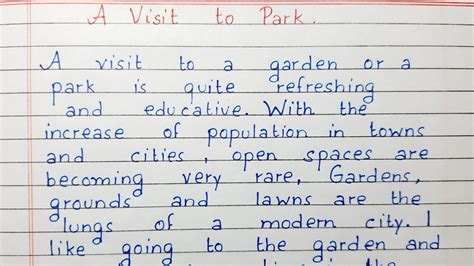 A Visit to Park.
A visit to a garden or a
park is quite refreshing
and educative. With the
increase of population in towns
and cities, open spaces are
becoming very rare, Gardens,
grounds and lawns are the
lungs of a modern city. I
like going to the garden and